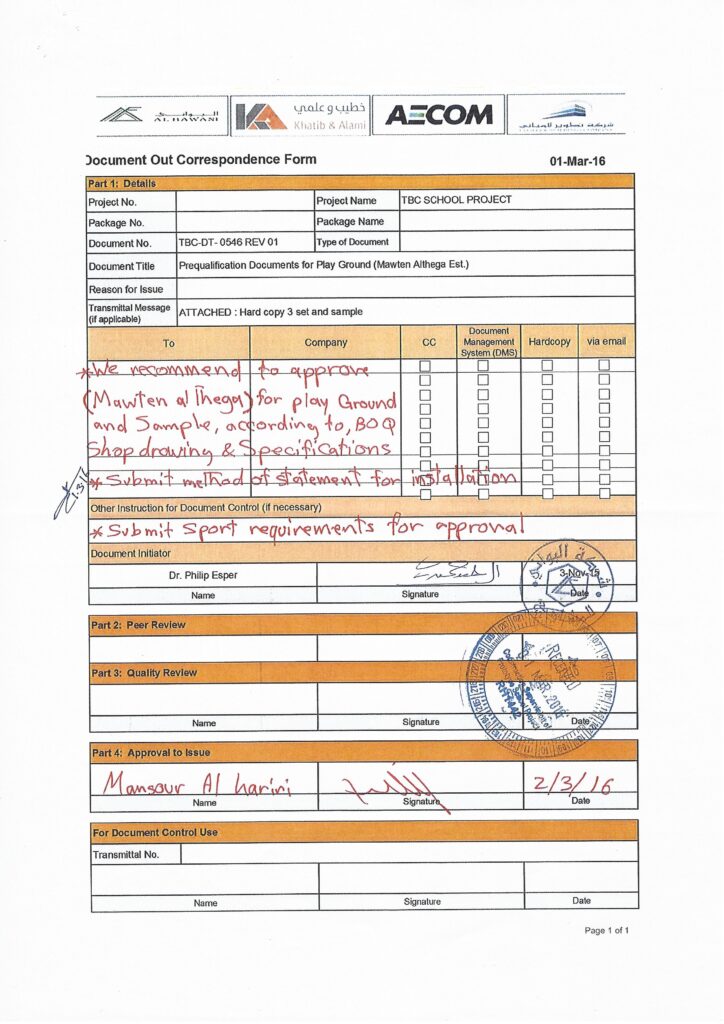 البواني
AL BAWANI
خطيب و علمي
Khatib & Alami
AECOM
شركة تطوير المباني
Document Out Correspondence Form
01-Mar-16
Part 1: Details
Project No. Project Name TBC SCHOOL PROJECT
Package No. Package Name
Document No. TBC-DT- 0546 REV 01 Type of Document
Document Title Prequalification Documents for Play Ground (Mawten Althega Est.)
Reason for Issue
Transmittal Message
(if applicable)
ATTACHED : Hard copy 3 set and sample
To Company CC Document Management System (DMS) Hardcopy via email
* We recommend to approve
(Mawten al Thega) for play Ground
and Sample, according to, BOQ
Shop drawing & Specifications
* Submit method of statement for installation
Other Instruction for Document Control (if necessary)
* Submit Sport requirements for approval
Document Initiator
Dr. Philip Esper 3-Nov-15
Name Signature Date
شركة البواني
Part 2: Peer Review
RECEIVED
Part 3: Quality Review
Name Signature Date
Part 4: Approval to Issue
Mansour Al hariri 2/3/16
Name Signature Date
For Document Control Use
Transmittal No.
Name Signature Date
Page 1 of 1